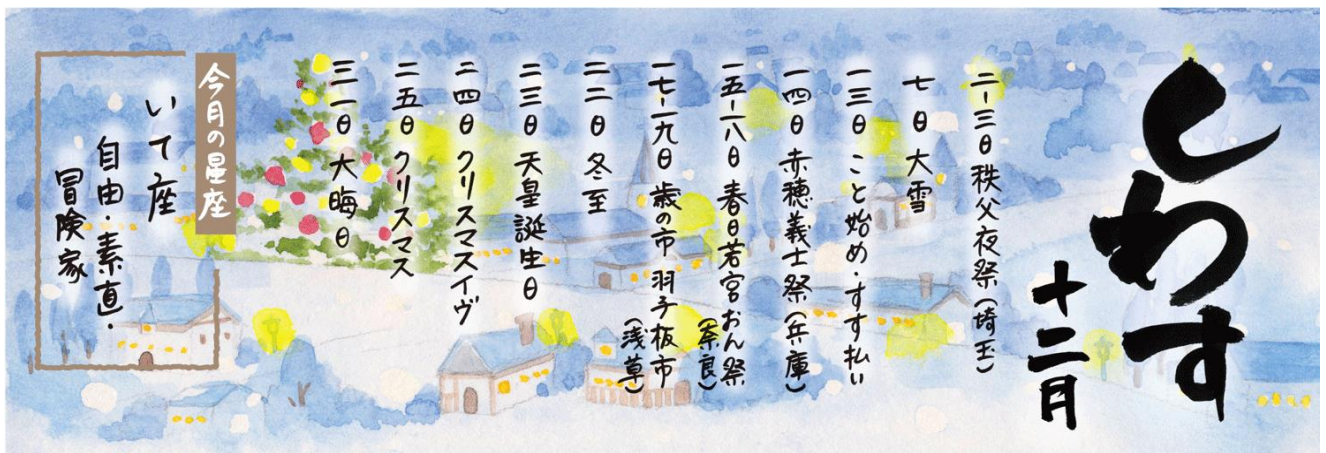 しわす
十二月
二-三日 秩父夜祭(埼玉)
七日 大雪
一三日 こと始め・すす払い
一四日 赤穂義士祭(兵庫)
一五-一八日 春日若宮おん祭
(奈良)
一七-一九日 歳の市 羽子板市
(浅草)
二二日 冬至
二三日 天皇誕生日
二四日 クリスマスイヴ
二五日 クリスマス
三一日 大晦日
今月の星座
いて座
自由・素直・
冒険家